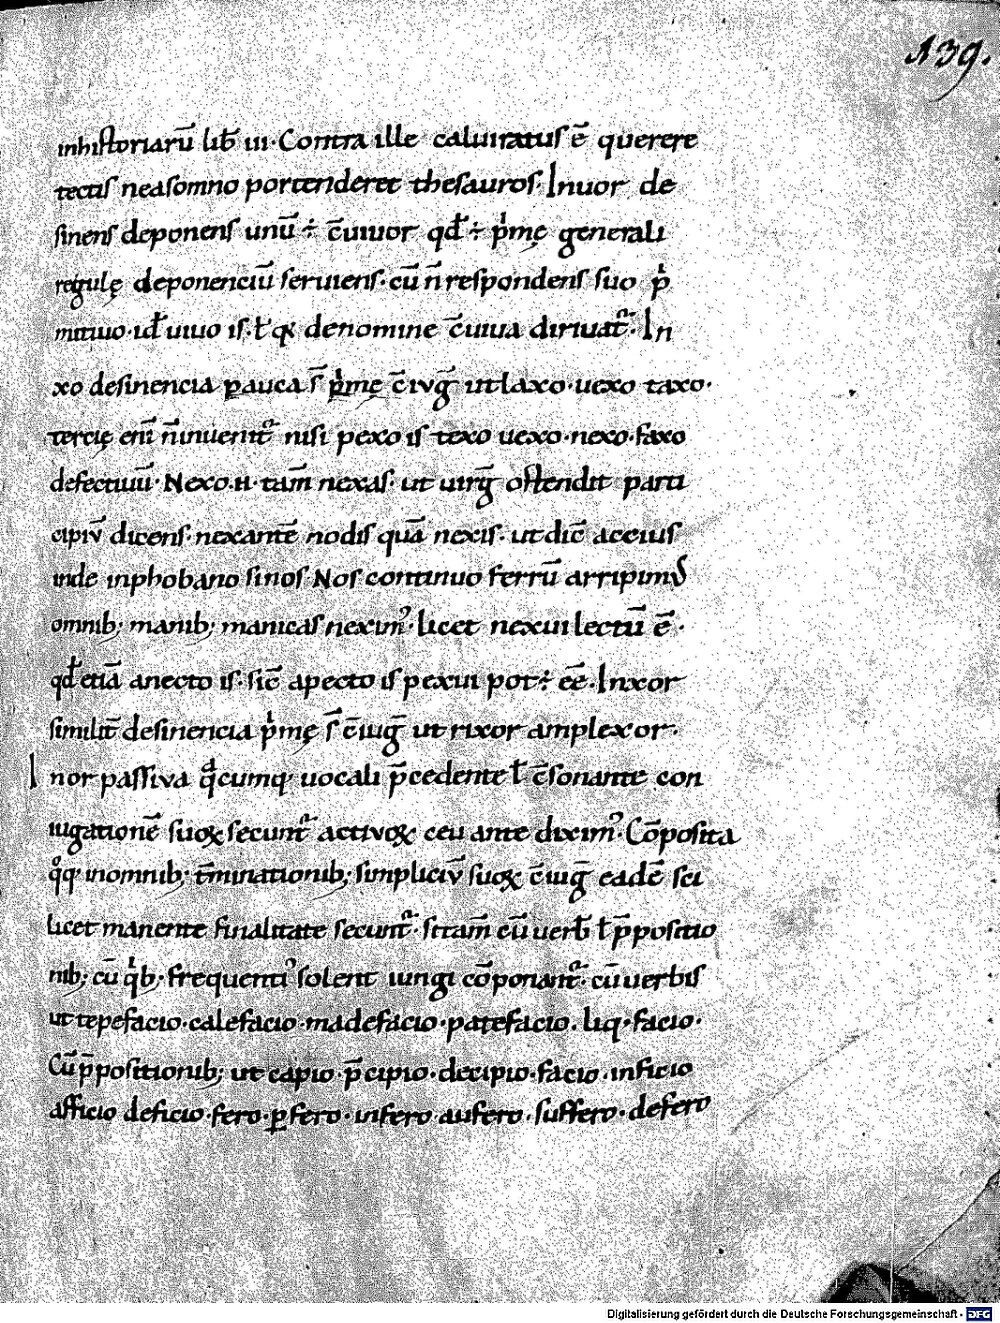 139.
inhistoriarū lib̄ iii · Contra ille caluiratus ē querere
tectis neasomno portenderet thesauros. Inuor de
sinens deponens unū ÷ c̄uiuor qđ ÷ pͥmę generali
regulę deponenciū seruiens · cū n̄ respondens suo pͥ
mitiuo · iđ uiuo is · ł qꝫ denomine c̄uiua diriuat᷑ · In
xo desinencia pauca s̄ pͥmę c̄iuḡ ut laxo · uexo taxo ·
tercię eni᷑ n̄ inuenit᷑ nisi pexo is texo uexo · nexo · faxo
defectiuū · Nexo · u · tam̄ nexas · ut uirḡ ostendit parti
cipiū dicens · nexantē nodis quā nexis · ut dic̄ accius
inde inphobano sinos Nos continuo ferrū arripimꝰ
omnib; manib; manicas neximꝰ · licet nexui lectū ē ·
qđ etiā anecto is · sic̄ apecto is pexui pot ÷ ēē · Inxor
similit̄ desinencia pͥmę s̄ c̄iuḡ ut rixor amplexor ·
Inor passiva qͣcumq; uocali p̄cedente ł c̄sonante con
iugationē suoꝝ secunt᷑ activoꝝ ceu ante diximꝰ · Cōposita
qͦq; inomnib; t̄minationib; simpliciū suoꝝ c̄iuḡ eadē sci
licet manente finalitate secunt᷑ · sitam̄ cū uerb̄ ł p̄positio
nib; cū qͥb; frequentiꝰ solent iungi cōponant᷑ · cū uerbis
ut tepefacio · calefacio · madefacio · patefacio · liq · facio ·
Cū p̄positionib; ut capio · p̄cipio · decipio · facio · inficio
afficio deficio · fero · ꝑfero · infero aufero · suffero · defero
Digitalisierung gefördert durch die Deutsche Forschungsgemeinschaft - DFG